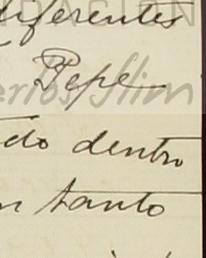 diferentes
Pepe
do dentro
n tanto